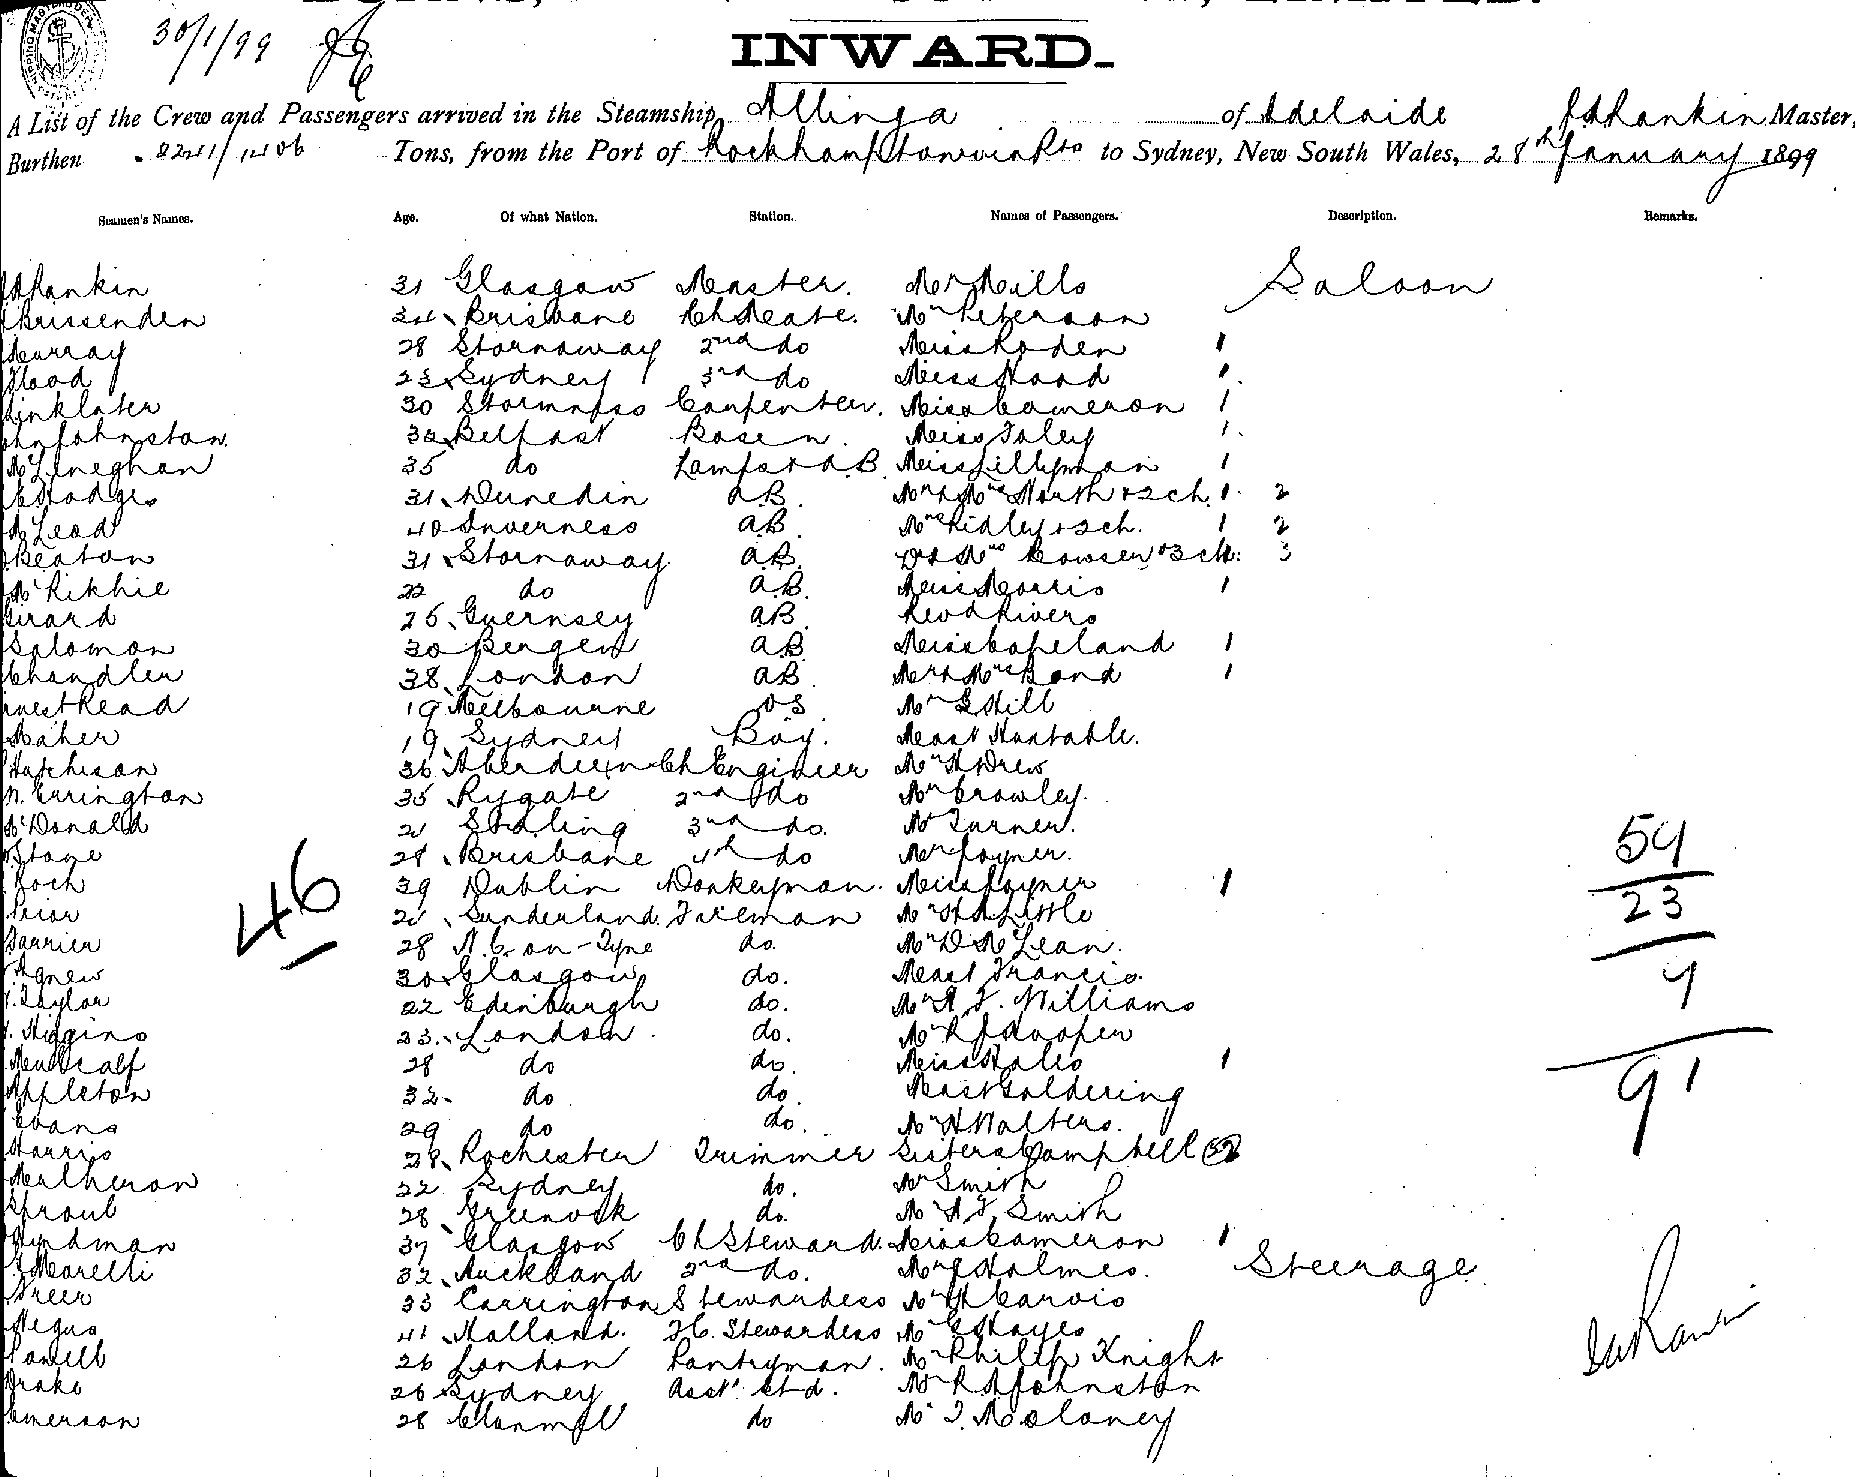 30/1/99
INWARD.
A List of the Crew and Passengers arrived in the Steamship Allinga of Adelaide J A Rankin Master,
Burthen 2241/1406 Tons, from the Port of Rockhampton via Pts to Sydney, New South Wales, 28th January 1899
Seamen's Names. Age. Of what Nation. Station. Names of Passengers. Description. Remarks.
Rankin 31 Glasgow Master. Mr Mills Saloon
Brissenden 34 Brisbane Ch Mate. Mr Peterson
Murray 28 Stornaway 2nd do Miss Roden 1
Flood 23 Sydney 3rd do Miss Hood 1
Linklater 30 Stormness Carpenter. Miss Cameron 1
Johnston. Belfast Bosen. Miss Foley 1
McLeneghan 35 do Lamps & AB Miss Lillyman 1
Hodges 31 Dunedin AB Mr & Mrs North & 2 ch. 1 2
McLeod 40 Inverness AB Mrs Ridley & 2 ch. 1 2
Beaton 31 Stornaway AB Dr & Mrs Cowsen & 3 ch. 3
McRikhie 22 do AB Miss Morris 1
Girard 25 Guernsey AB Revd Rivers
Salomon 30 Bergen AB Miss Copeland 1
Chandler 38 London AB Mr & Mrs Bond 1
Read 19 Melbourne OS Mr G Hill
Maher 19 Sydney Boy. Mast Huxtable.
Hutchison 36 Aberdeen Ch Engineer Mr H Drew
Errington 35 Rygate 2nd do Mr Crowley.
McDonald 21 Stirling 3rd do. Mr Turner.
Stone 28 Brisbane 4th do Mr Joyner.
Roch 39 Dublin Donkeyman. Miss Joyner 1
Prior Sunderland. Fireman Mr H A Little
Farrier 28 N.C. on-Tyne do. Mr D McLean.
Agnew 30 Glasgow do. Mast Francis.
Taylor 22 Edinburgh do. Mr H J. Williams
Higgins 23. London. do. Mr R J Hooper
Meadcalf 28 do do. Miss Hales 1
Appleton 32 do do. Mast Goldering
Evans 29 do do. Mr H Walters.
Harris 28 Rochester Trimmer Sisters Campbell 2
Mulheron 22 Sydney do. Mr Smith
Sproul 28 Greenock do. Mr H J. Smith
Hyndman 37 Glasgow Ch Steward. Miss Cameron 1
Morelli 32 Auckland 2nd do. Mr J Holmes. Steerage
Greer 33 Carrington Stewardess Mr H Carvis
Negus 41 Holland. F.C. Stewardess Mr G Hayes
Powell 26 London Pantryman. Mr Philip Knight
Drake 26 Sydney Asst Std. Mr R A Johnston
Emerson 28 Clonmel do Mr J. Moloney
46
59
23
9
91